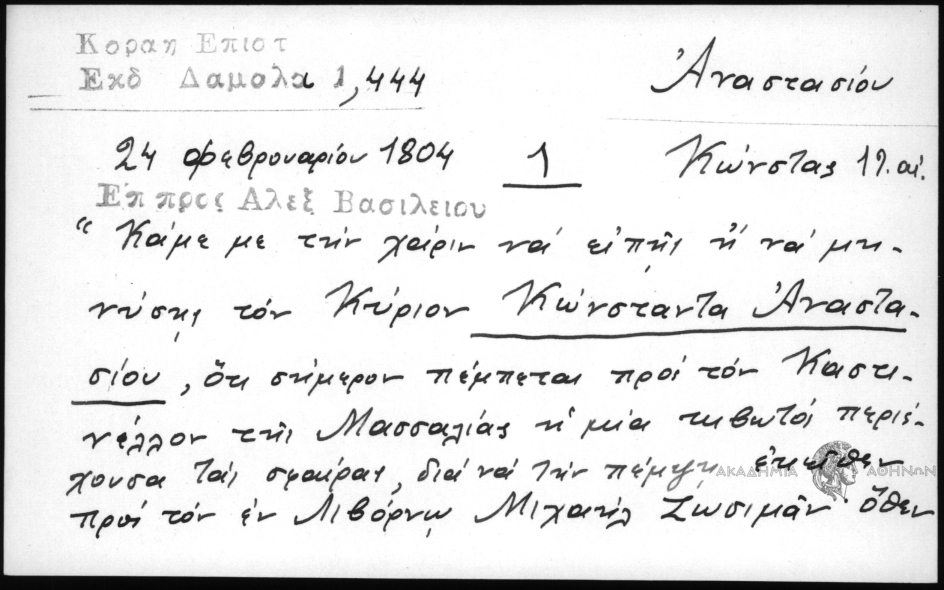 Κοραη Επιστ
Εκδ Δαμαλα 1,444
Ἀναστασίου
24 Φεβρουαρίου 1804
1
Κώνστας 19. αἰ.
Ἐπ προς Αλεξ Βασιλειου
“ Κάμε με τὴν χάριν νὰ εἰπῆς ἢ νὰ μη-
νύσῃς τὸν Κύριον Κώνσταντα Ἀναστα-
σίου, ὅτι σήμερον πέμπεται πρὸς τὸν Καστι-
νέλλον τῆς Μασσαλίας ἡ μία κιβωτὸς περιέ-
χουσα τὰς σφαίρας, διὰ νὰ τὴν πέμψῃ ἐκεῖθεν
πρὸς τὸν ἐν Λιβόρνῳ Μιχαὴλ Ζωσιμᾶν ὅθεν
ΑΚΑΔΗΜΙΑ ΑΘΗΝΩΝ